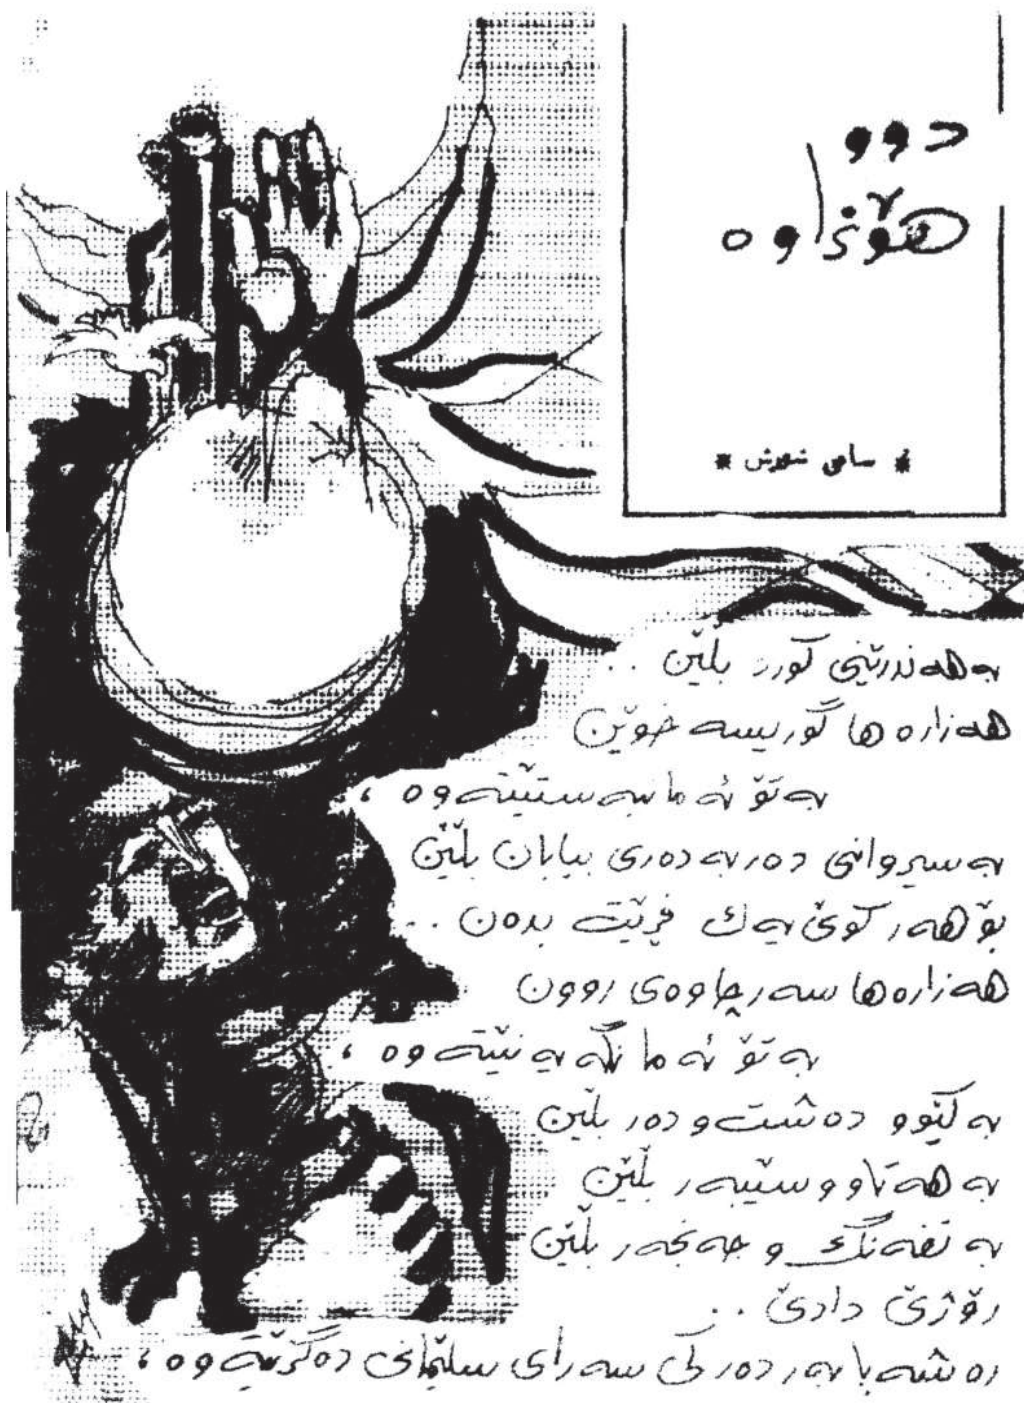 دوو
هۆنراوە
* سامی شۆرش *
بە هەندرێنی کوور بڵێن ..
هەزارەها گوریسە خوێن
بە تۆ ئەمانبەستێتەوە ،
بە سیروانی دەربەدەری بیابان بڵێن
بۆ هەر کوێ یەک فڕێت بدەن ..
هەزارەها سەرچاوەی روون
بە تۆ ئەمانگەیەنێتەوە ،
بە کێوو دەشت و دەر بڵێن
بە هەتاو و سێبەر بڵێن
بە تفەنگ و خەنجەر بڵێن
رۆژێ دادێ ..
رەشەبا بەر دەرکی سەرای سلێمانی دەگرێتەوە ،